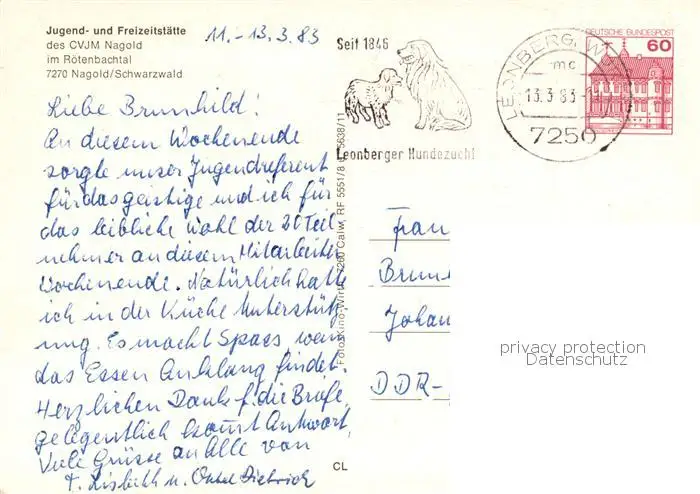 Jugend- und Freizeitstätte
des CVJM Nagold
im Rötenbachtal
7270 Nagold/Schwarzwald
11.-13.3.83
Liebe Brunhild!
An diesem Wochenende
sorgte unser Jugendreferent
für das geistige und ich für
das leibliche Wohl der 20 Teil
nehmer an diesem Mitarbeiter
Wochenende. Natürlich hatte
ich in der Küche Unterstütz-
ung. Es macht Spass wenn
das Essen Anklang findet.
Herzlichen Dank f. die Briefe,
gelegentlich kommt Antwort,
Viele Grüsse an Alle von
T. Lisbeth u. Onkel Dietrich
Seit 1846
Leonberger Hundezucht
LEONBERG, WÜ
mc
13.3.83
7250
DEUTSCHE BUNDESPOST
60
Foto Kino-Wirth, 7260 Calw, RF 5551/8 5638/11
CL
Frau
Brun
Johan
DDR-
privacy protection
Datenschutz